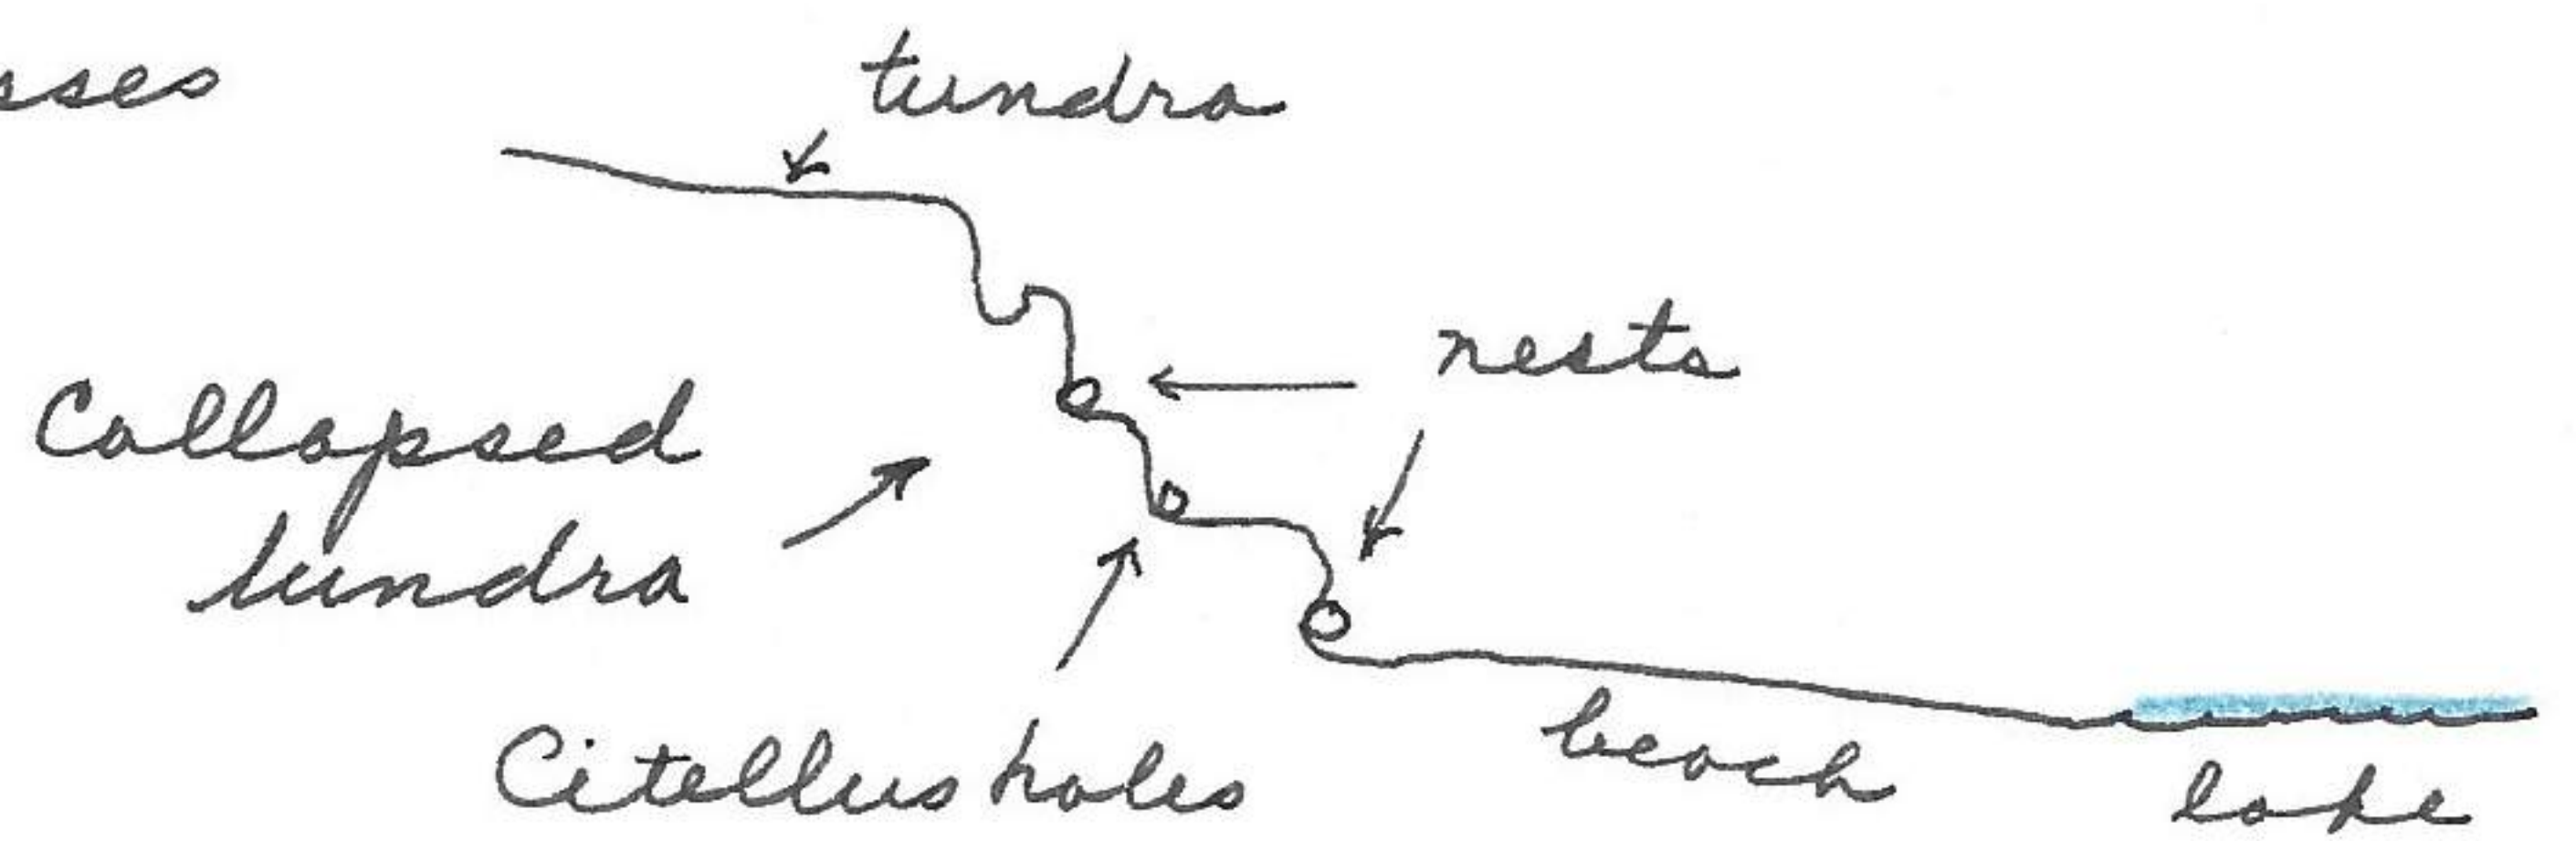 sses
tundra
nests
Collapsed
tundra
Citellus holes
beach
lake